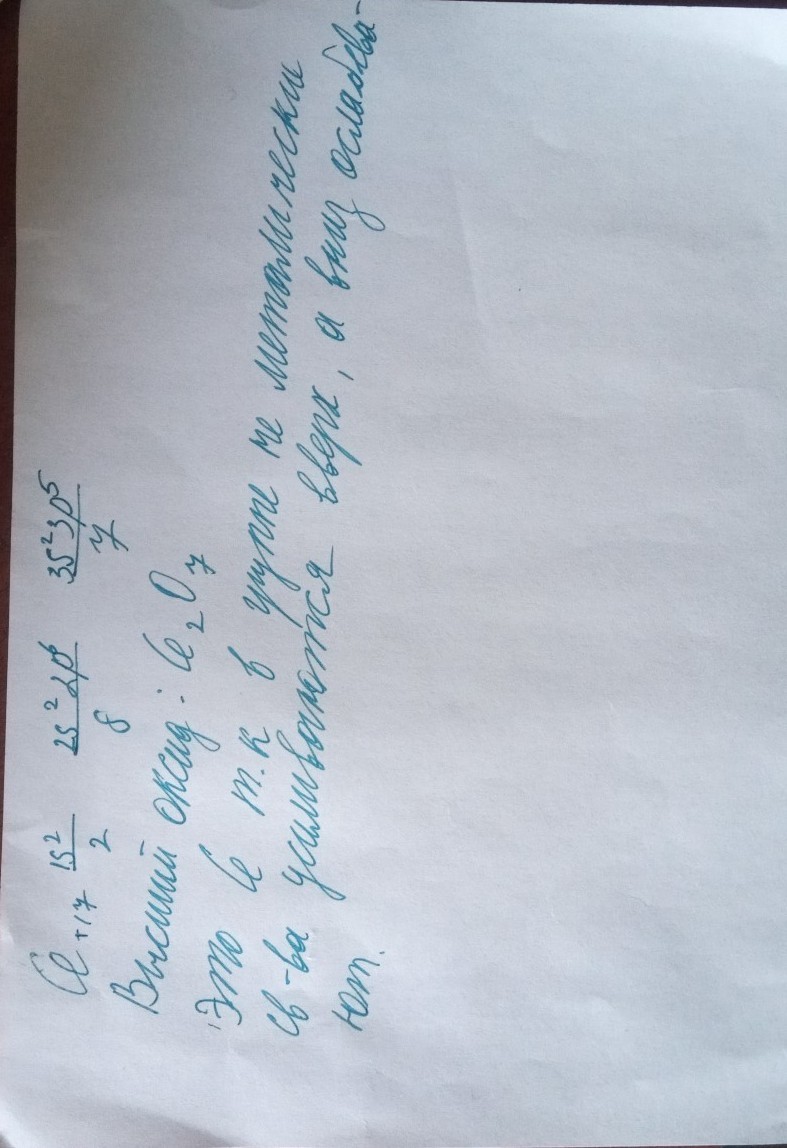 Cl +17 1s² 2s² 2p⁶ 3s² 3p⁵
2 8 7
Высший оксид: Cl₂O₇
Это Cl т.к в групне не металически
св-ва усиливаются вверх, а вниз ослабева-
ют.